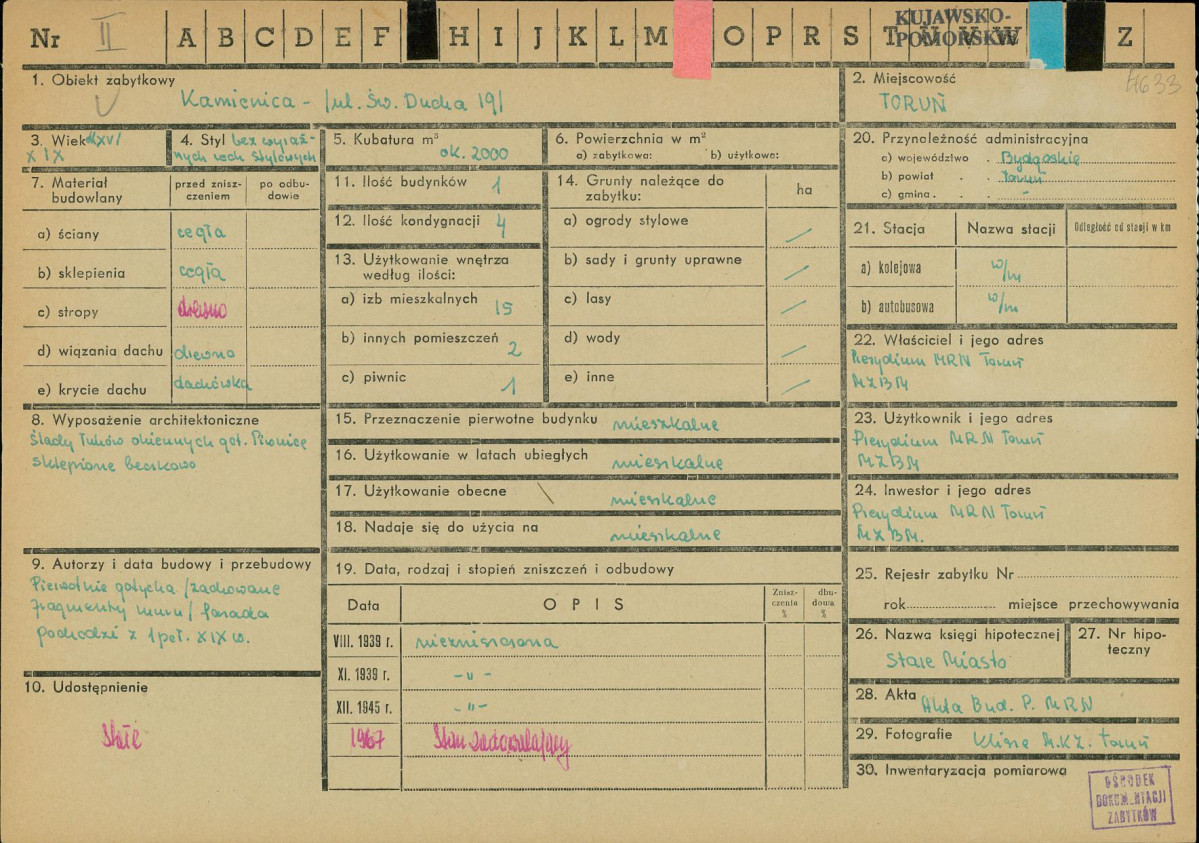 Nr II A B C D E F H I J K L M O P R S T U V W Z
KUJAWSKO-
POMORSKIE
1. Obiekt zabytkowy
Kamienica - /ul. Św. Ducha 19/
2. Miejscowość
TORUŃ
4633
3. Wiek XV/
XIX
4. Styl bez wyraź-
nych cech stylowych
5. Kubatura m³
ok. 2000
6. Powierzchnia w m²
a) zabytkowa: b) użytkowe:
7. Materiał
budowlany
przed znisz-
czeniem
po odbu-
dowie
a) ściany cegła
b) sklepienia cegła
c) stropy drewno
d) wiązania dachu drewno
e) krycie dachu dachówka
8. Wyposażenie architektoniczne
Ślady łuków okiennych got. Piwnice
sklepione beczkowo
9. Autorzy i data budowy i przebudowy
Pierwotnie gotycka /zachowane
fragmenty muru/ fasada
pochodzi z 1 poł. XIX w.
10. Udostępnienie
Stałe
11. Ilość budynków 1
12. Ilość kondygnacji 4
13. Użytkowanie wnętrza
według ilości:
a) izb mieszkalnych 15
b) innych pomieszczeń 2
c) piwnic 1
14. Grunty należące do
zabytku:
ha
a) ogrody stylowe
b) sady i grunty uprawne
c) lasy
d) wody
e) inne
15. Przeznaczenie pierwotne budynku mieszkalne
16. Użytkowanie w latach ubiegłych mieszkalne
17. Użytkowanie obecne mieszkalne
18. Nadaje się do użycia na mieszkalne
19. Data, rodzaj i stopień zniszczeń i odbudowy
Data OPIS
Znisz-
czenia
%
dbu-
dowa
%
VIII. 1939 r. niezniszczona
XI. 1939 r. -„-
XII. 1945 r. -„-
1967 Stan zadowalający
20. Przynależność administracyjna
c) województwo . Bydgoskie
b) powiat . . Toruń
c) gmina . . . -
21. Stacja Nazwa stacji Odległość od stacji w km
a) kolejowa w/m
b) autobusowa w/m
22. Właściciel i jego adres
Prezydium MRN Toruń
MZBM
23. Użytkownik i jego adres
Prezydium MRN Toruń
MZBM
24. Inwestor i jego adres
Prezydium MRN Toruń
MZBM.
25. Rejestr zabytku Nr
rok miejsce przechowywania
26. Nazwa księgi hipotecznej
Stare Miasto
27. Nr hipo-
teczny
28. Akta Akta Bud. P. MRN
29. Fotografie Klisze M.K.Z. Toruń
30. Inwentaryzacja pomiarowa
OŚRODEK
DOKUMENTACJI
ZABYTKÓW